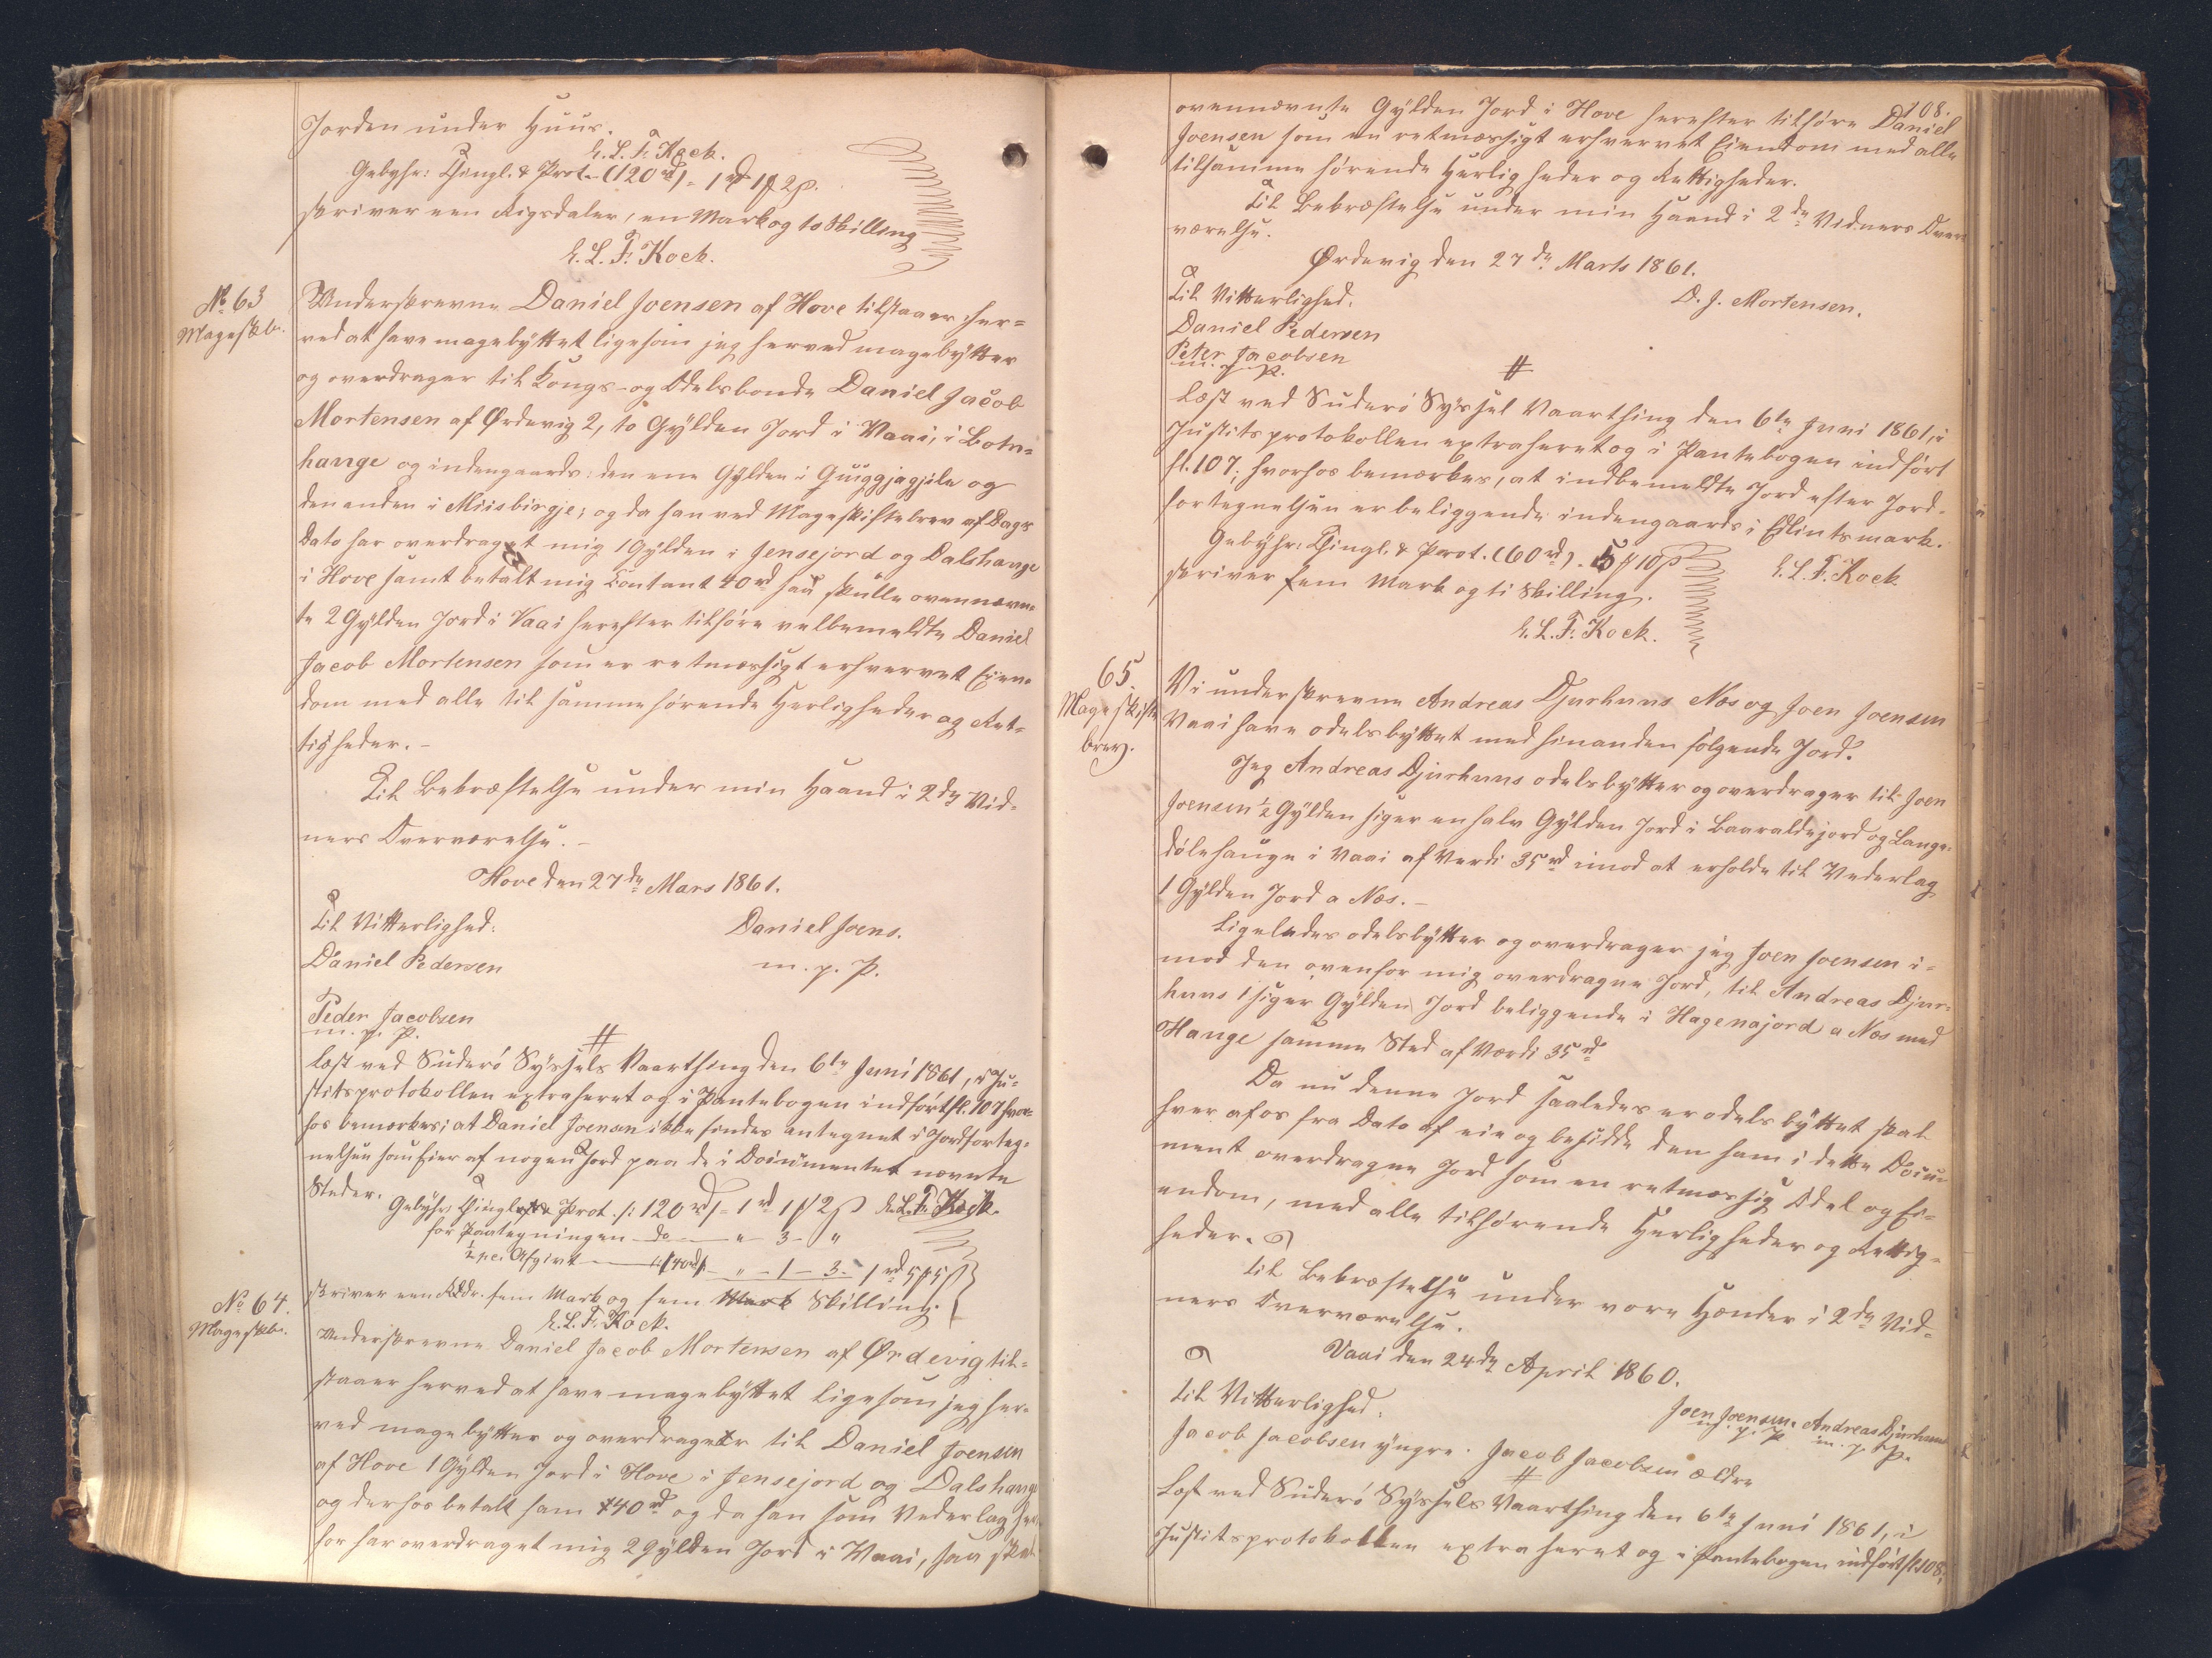 Jorden under Huus.
E. L. F. Kock.
Gebyhr: Thingl. & Prot. (120 rd) = 1 rd 1 ℳ 2 ß.
skriver een Rigsdaler, en Mark og to Skilling
E. L. F. Kock.
No 63
Mageskbr.
Underskrevne Daniel Joensen af Hove tilstaaer her=
ved at have magebyttet ligesom jeg herved magebytter
og overdrager til Kongs- og Odelsbonde Daniel Jacob
Mortensen af Ørdevig 2, to Gylden Jord i Vaai, i Botn=
hauge og indengaards: den ene Gylden i Quiggjagjile og
den anden i Miisbirgje; og da han ved Mageskiftebrev af Dags
Dato har overdraget mig 1 Gylden i Jensejord og Dalshauge
i Hove samt betalt mig Contant 40 rd saa skulle ovennævn=
te 2 Gylden Jord i Vaai herefter tilhøre velbemeldte Daniel
Jacob Mortensen som er retmæssigt erhvervet Eien=
dom med alle til samme hørende Herligheder og Ret=
tigheder. -
Til Bekræftelse under min Haand i 2de Vid=
ners Overværelse. -
Hove den 27de Mars 1861.
Til Vitterlighed:
Daniel Joens.
Daniel Pedersen
m. p. P.
Peder Jacobsen
m. p. P.
#
læst ved Suderö Syssels Vaarthing den 6te Juni 1861, i Ju=
stitsprotokollen extraheret og i Pantebogen indført fl. 107 hvor=
hos bemærkes; at Daniel Joensen ikke findes antegnet i Jordforteg=
nelsen som Eier af nogen Jord paa de i Documentet nævnte
Steder.
Gebyhr: Thingl. & Prot. /: 120 rd /= 1 rd 1 ℳ 2 ß E. L. F. Kock.
for Paategningen do — " — 3 — "
½ pc. Afgivt — /: 40 rd /: " — 1 — 3. 1 rd 5 ℳ 5 ß
skriver een Rddr. fem Mark og fem Mark Skilling.
E. L. F. Kock.
No 64.
Mageskbr.
Underskrevne Daniel Jacob Mortensen af Ørdevig til=
staaer herved at have magebyttet ligesom jeg her=
ved magebytter og overdrager til Daniel Joensen
af Hove 1 Gylden Jord i Hove i Jensejord og Dalshauge
og derhos betalt ham 40 rd og da han som Vederlag her=
for har overdraget mig 2 Gylden Jord i Vaai, saa skal
108.
ovennævnte Gylden Jord i Hove herefter tilhøre Daniel
Joensen som en retmæssigt erhvervet Eiendom med alle
tilsamme hørende Herligheder og Rettigheder.
Til Bekræftelse under min Haand i 2de Vidners Over=
værelse.
Ørdevig den 27de Marts 1861.
Til Vitterlighed.
D. J. Mortensen.
Daniel Pedersen
Peter Jacobsen
m. p. P.
#
Læst ved Suderö Syssel Vaarthing den 6te Juni 1861, i
Justitsprotokollen extraheret og i Pantebogen indført
fl. 107; hvorhos bemærkes, at indbemeldte Jord efter Jord=
fortegnelsen er beliggende indengaards i Edlintsmark.
Gebyhr: Thingl. & Prot. (60 rd). 5 ℳ 10 ß
E. L. F. Kock
skriver fem Mark og ti Skilling.
E. L. F. Kock.
65.
Mageskifte
brev.
Vi underskrevne Andreas Djurhuus Næs og Joen Joensen
Vaai have odelsbyttet med hinanden følgende Jord.
Jeg Andreas Djurhuus odelsbytter og overdrager til Joen
Joensen ½ Gylden siger en halv Gylden Jord i Baaraldejord og Lange=
dølehauge i Vaai af Verdi 35 rd imod at erholde til Vederlag
1 Gylden Jord a Næs. -
Ligeledes odelsbytter og overdrager jeg Joen Joensen i=
mod den ovenfor mig overdragne Jord, til Andreas Djur=
huus 1 siger Gylden Jord beliggende i Hagenajord a Næs med
Hauge samme Sted af Værdi 35 rd
Da nu denne Jord saaledes er odelsbyttet skal
hver af os fra Dato af eie og besidde den ham i dette Docu=
ment overdragne Jord som en retmæssig Odel og Ei=
endom, med alle tilhørende Herligheder og Rettig=
heder.
Til Bekræftelse under vore Hænder i 2de Vid=
ners Overværelse.
Vaai den 24de April 1860.
Til Vitterlighed.
Joen Joensen. Andreas Djurhuus
m. p. P. m. p. P.
Jacob Jacobsen yngre. Jacob Jacobsen ældre
#
Læst ved Suderö Syssels Vaarthing den 6te Juni 1861, i
Justitsprotokollen extraheret og i Pantebogen indført fl. 108;